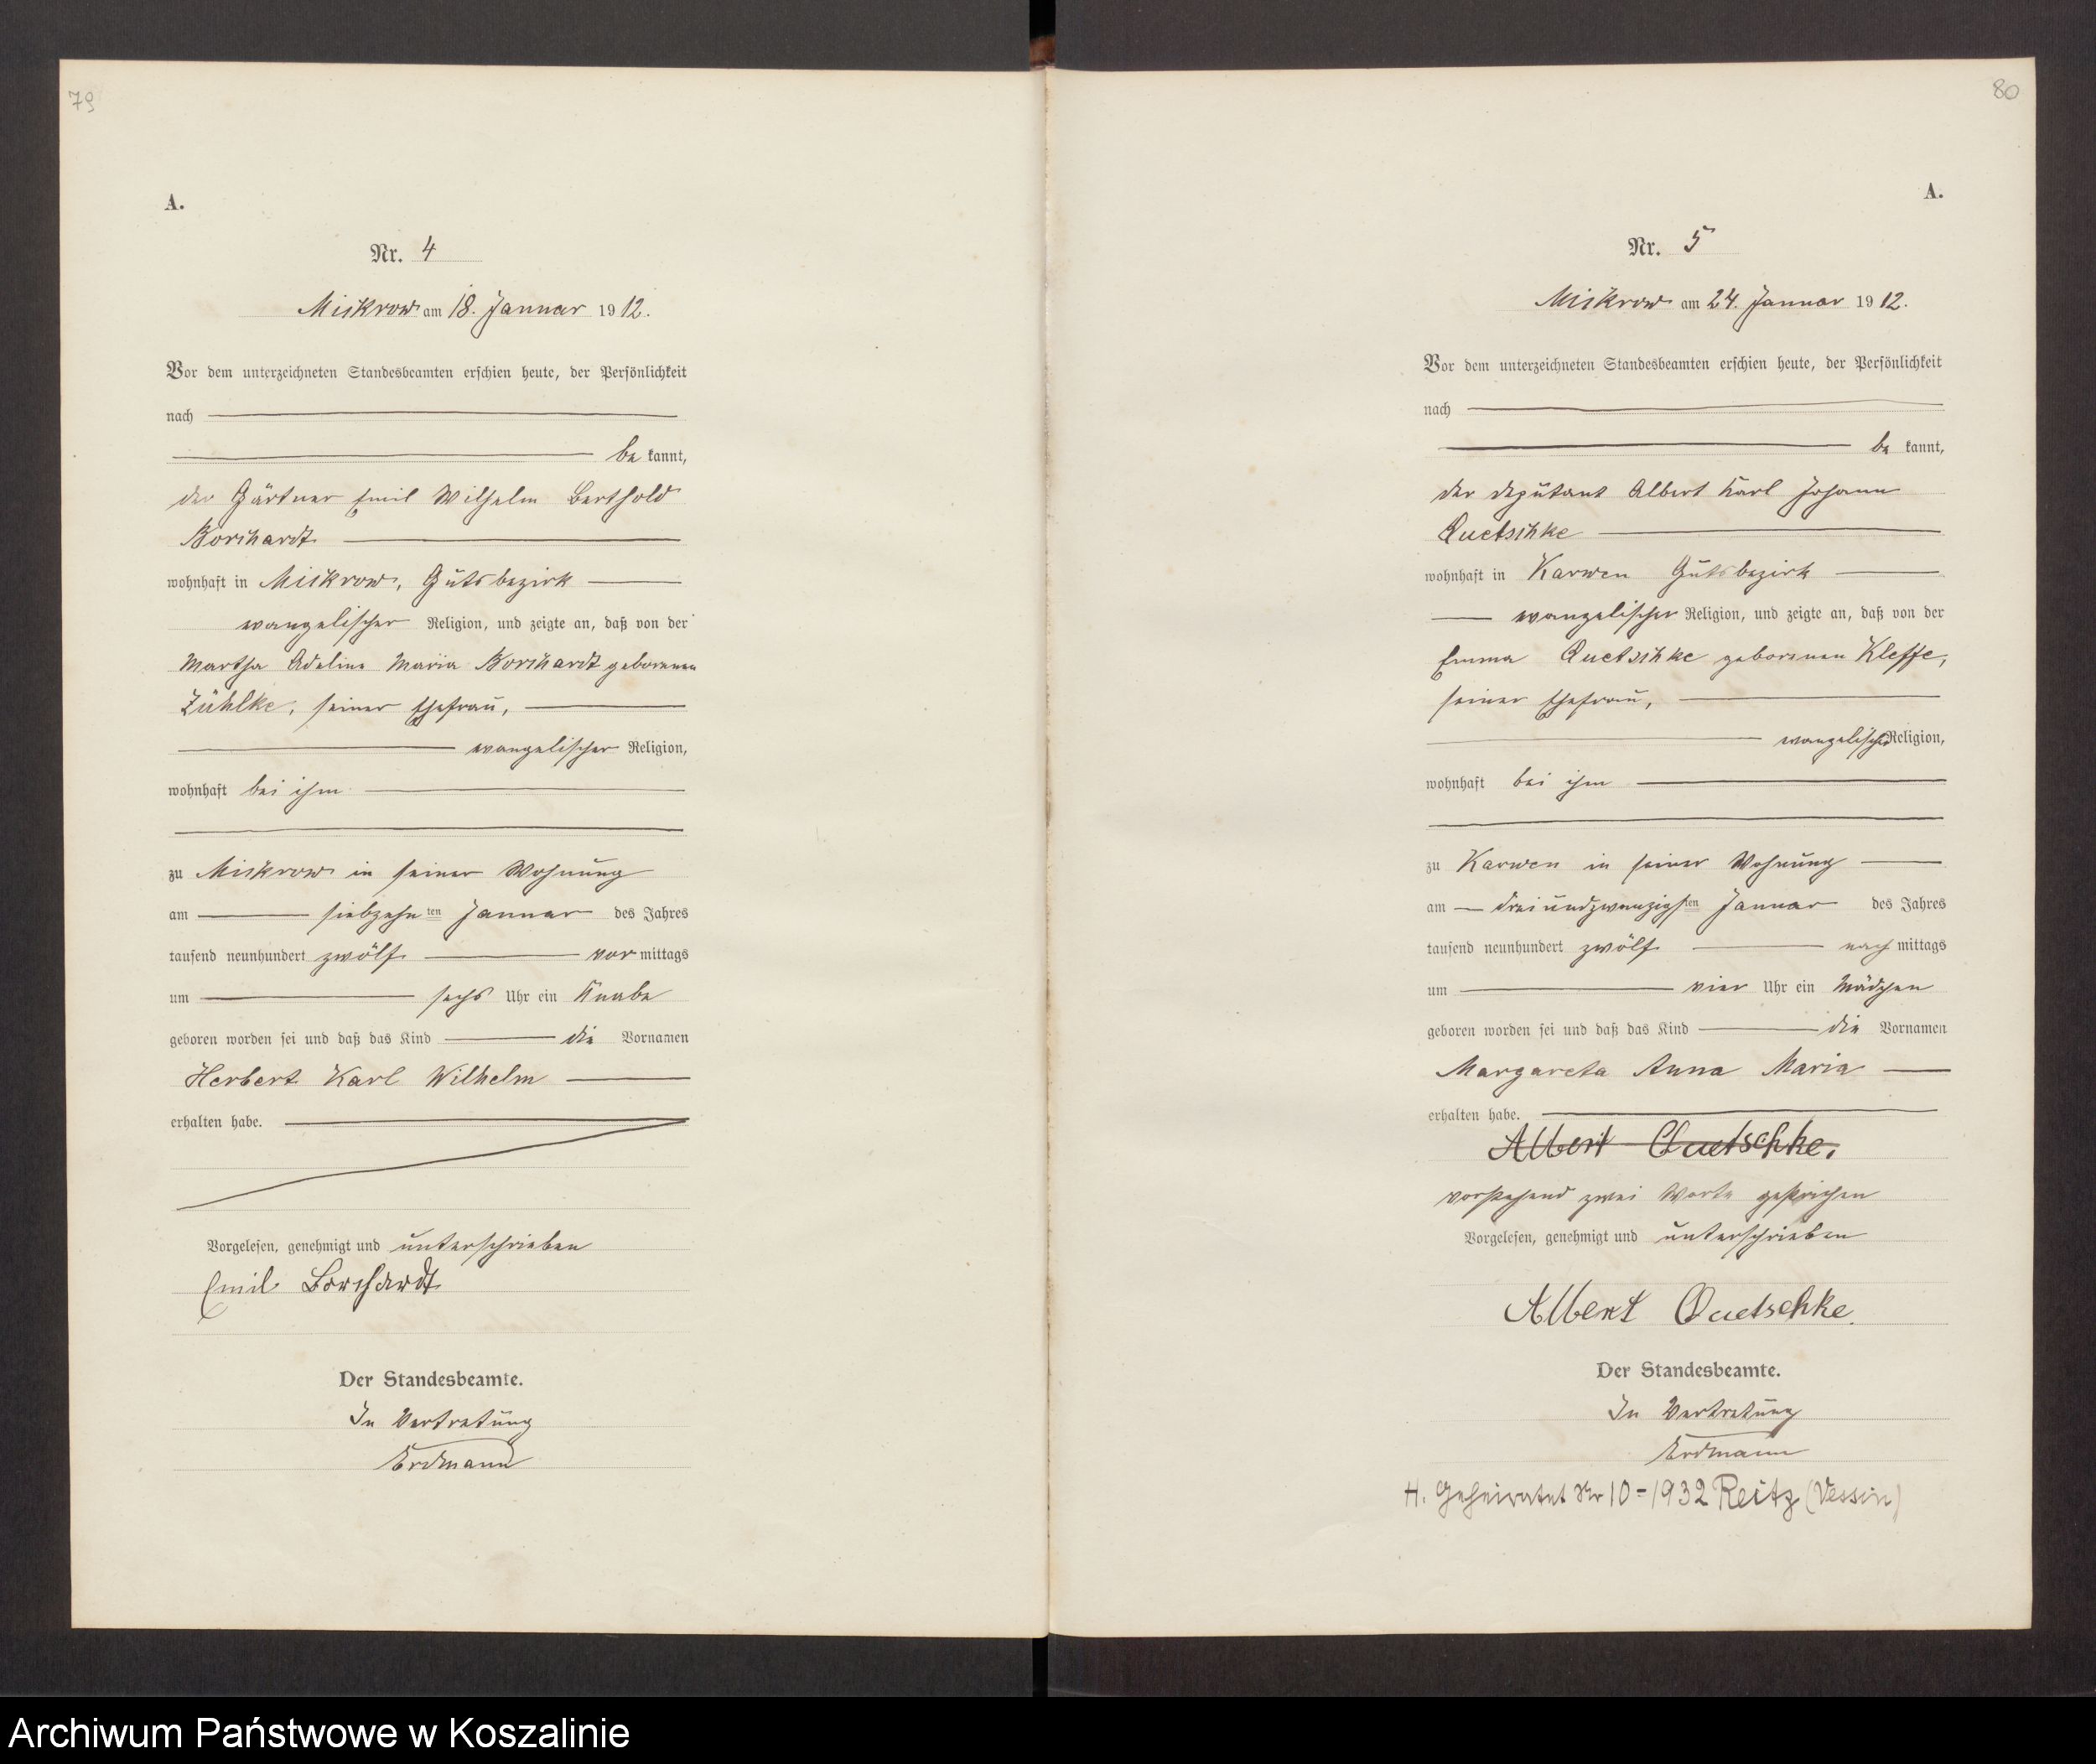 79
A.
Nr. 4
Mickrow am 18. Januar 1912.
Vor dem unterzeichneten Standesbeamten erschien heute, der Persönlichkeit
nach
be kannt,
der Gärtner Emil Wilhelm Berthold
Borchardt
wohnhaft in Mickrow, Gutsbezirk
evangelischer Religion, und zeigte an, daß von der
Martha Adeline Maria Borchardt geborenen
Zühlke, seiner Ehefrau,
evangelischer Religion,
wohnhaft bei ihm
zu Mickrow in seiner Wohnung
am siebzehnten Januar des Jahres
tausend neunhundert zwölf vor mittags
um sechs Uhr ein Knabe
geboren worden sei und daß das Kind die Vornamen
Herbert Karl Wilhelm
erhalten habe.
Vorgelesen, genehmigt und unterschrieben
Emil Borchardt
Der Standesbeamte.
In Vertretung
Erdmann
80
A.
Nr. 5
Mickrow am 24. Januar 1912.
Vor dem unterzeichneten Standesbeamten erschien heute, der Persönlichkeit
nach
be kannt,
der Deputant Albert Karl Johann
Quetschke
wohnhaft in Karwen Gutsbezirk
evangelischer Religion, und zeigte an, daß von der
Emma Quetschke geborenen Kleffe,
seiner Ehefrau,
evangelischer Religion,
wohnhaft bei ihm
zu Karwen in seiner Wohnung
am dreiundzwanzigsten Januar des Jahres
tausend neunhundert zwölf nach mittags
um vier Uhr ein Mädchen
geboren worden sei und daß das Kind die Vornamen
Margareta Anna Maria
erhalten habe.
Albert Quetschke.
vorstehend zwei Worte gestrichen
Vorgelesen, genehmigt und unterschrieben
Albert Quetschke.
Der Standesbeamte.
In Vertretung
Erdmann
H. Geheiratet Nr 10=1932 Reitz (Vessin)
Archiwum Państwowe w Koszalinie